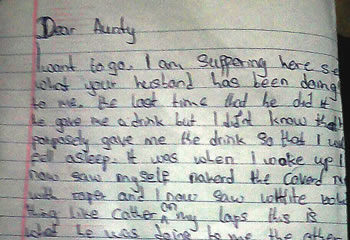 Dear Aunty
I want to go. I am suffering here se
what your husband has been doing
to me. the last time that he did it
he gave me a drink but I didnt know that
purposely gave me the drink so that I w
fell asleep. it was when I wake up I
now saw myself nakerd the coverd
with roper and I now saw whitte
thing like cather on my laps this is
what he was doing to me the other